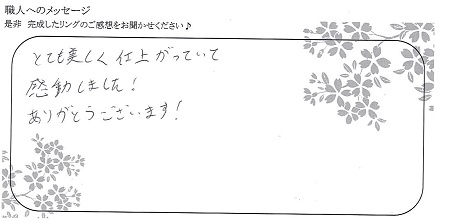 職人へのメッセージ
是非 完成したリングのご感想をお聞かせください♪
とても美しく仕上がっていて
感動しました!
ありがとうございます!